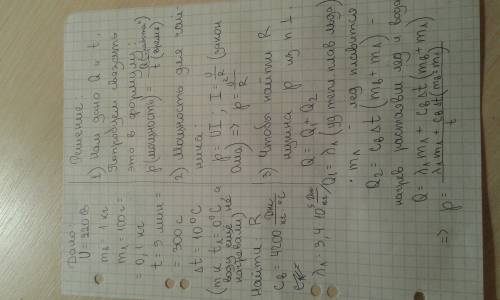 Дано:
U = 220 В
mв = 1 кг
mл = 100 г =
= 0,1 кг
t = 5 мин =
= 300 с
Δt = 10°C
(т.к. t₁ = 0°C, а
воду ещё не
нагревали)
Найти: R
cв = 4200 Дж/кг·°C
λл = 3,4·10⁵ Дж/кг
Решение
1) Нам дано Q и t.
Попробуем связать
это в формулу:
p (мощность) = Q (работа) / t (время)
2) Мощность для чай
ника
p = UI, I = U/R (закон
Ома) => p = U²/R
3) Чтобы найти R
нужна p из п 1.
Q = Q₁ + Q₂
Q₁ = λл (уд тепл плав льда)
· mл лёд плавится
Q₂ = cв Δt (mв + mл) –
нагрев растаявш лёд и вода
Q = λл mл + cв Δt (mв + mл)
=> p = λл mл + cв Δt (mв + mл) / t